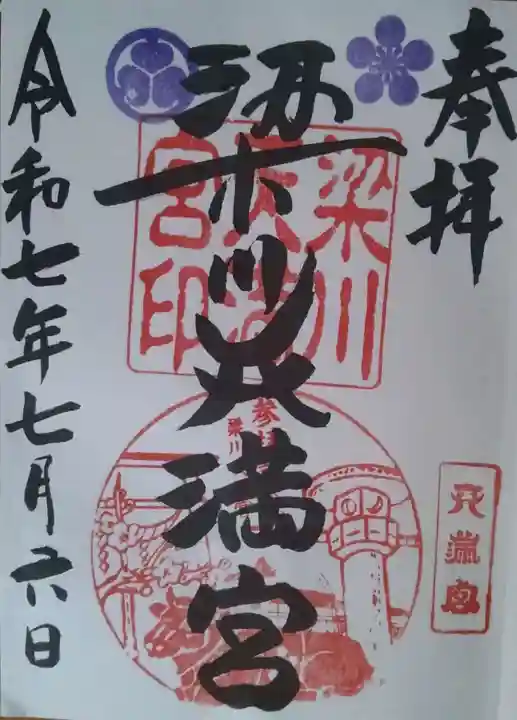 奉拝
梁川天満宮
令和七年七月六日
梁川
天満
宮印
天満宮